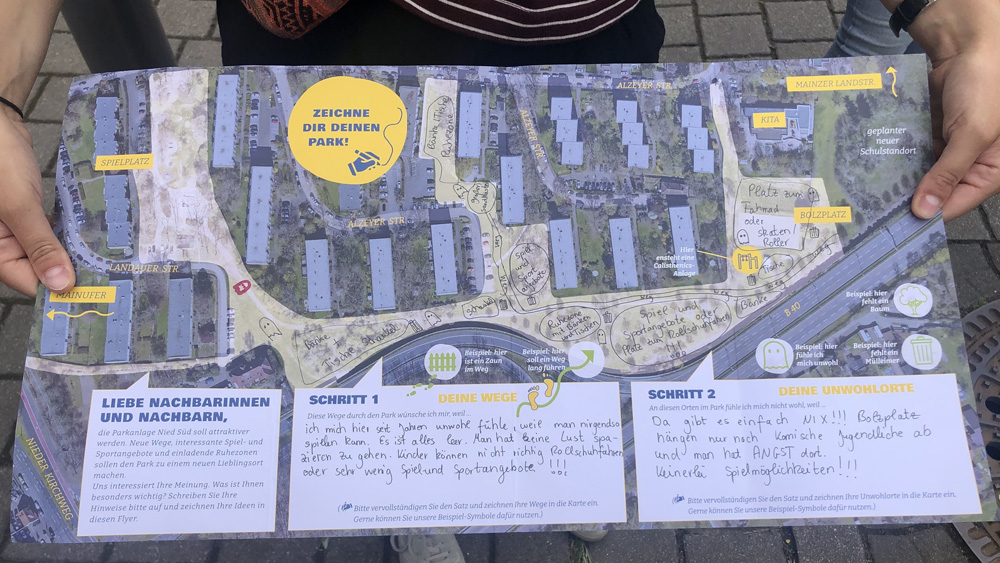 ZEICHNE
DIR DEINEN
PARK!
SPIELPLATZ
ALZEYER STR.
ALZEYER STR.
ALZEYER STR.
MAINZER LANDSTR.
KITA
geplanter
neuer
Schulstandort
BOLZPLATZ
Platz zum
Fahrrad
oder
skaten/
Roller
Hier
ensteht eine
Calisthenics-
Anlage
LANDAUER STR.
MAINUFER
Bänke/Tische
Ruhezone
Spiel
und
Sport
angebote
Bänke
Tische
Ruhezone
mit Bänken
Spiel- und
Sportangebote oder
Platz zum Rollschuhfahren
Bänke
B 40
Beispiel: hier
fehlt ein
Baum
Beispiel: hier
ist ein Zaun
im Weg
Beispiel: hier
soll ein Weg
lang führen
Beispiel: hier
fühle ich
mich unwohl
Beispiel: hier
fehlt ein
Mülleimer
NIEDER KIRCHWEG
LIEBE NACHBARINNEN
UND NACHBARN,
die Parkanlage Nied Süd soll attraktiver
werden. Neue Wege, interessante Spiel- und
Sportangebote und einladende Ruhezonen
sollen den Park zu einem neuen Lieblingsort
machen.
Uns interessiert Ihre Meinung. Was ist Ihnen
besonders wichtig? Schreiben Sie Ihre
Hinweise bitte auf und zeichnen Ihre Ideen in
diesen Flyer.
SCHRITT 1 DEINE WEGE
Diese Wege durch den Park wünsche ich mir, weil ...
ich mich hier seit Jahren unwohl fühle, weil man nirgendso
spielen kann. Es ist alles leer. Man hat keine Lust spa-
zieren zu gehen. Kinder können nicht richtig Rollschuhfahren
oder sehr wenig Spiel und Sportangebote !!!
(Bitte vervollständigen Sie den Satz und zeichnen Ihre Wege in die Karte ein.
Gerne können Sie unsere Beispiel-Symbole dafür nutzen.)
SCHRITT 2 DEINE UNWOHLORTE
An diesen Orten im Park fühle ich mich nicht wohl, weil ...
Da gibt es einfach NIX!!! Bolzplatz
hängen nur noch komische Jugendliche ab
und man hat ANGST dort.
Keinerlei Spielmöglichkeiten!!!
(Bitte vervollständigen Sie den Satz und zeichnen Ihre Unwohlorte in die Karte ein.
Gerne können Sie unsere Beispiel-Symbole dafür nutzen.)